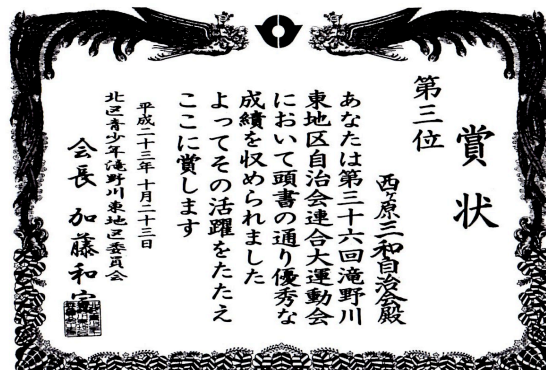 賞状
第三位
西ケ原三和自治会殿
あなたは第三十六回滝野川
東地区自治会連合大運動会
において頭書の通り優秀な
成績を収められました
よってその活躍をたたえ
ここに賞します
平成二十三年十月二十三日
北区青少年滝野川東地区委員会
会長 加藤和宣